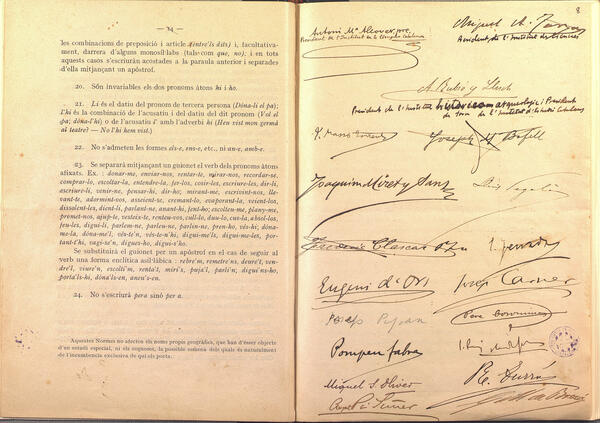 — 24 —
les combinacions de preposició i article (dintre'ls dits) i, facultativa-
ment, darrera d'alguns monosíl·labs (tals com que, no); en tots
aquests casos s'escriuràn acostades a la paraula anterior i separades
d'ella mitjançant un apòstrof.
20. Són invariables els dos pronoms àtons hi i ho.
21. Li és el datiu del pronom de tercera persona (Dóna-li el pa);
l'hi és la combinació de l'acusatiu i del datiu del dit pronom (Vol el
pa; dóna-l'hi) o de l'acusatiu l' amb l'adverbi hi (Has vist mon germà
al teatre? — No l'hi hem vist.)
22. No s'admeten les formes els-e, ens-e, etc., ni an-e, amb-e.
23. Se separarà mitjançant un guionet el verb dels pronoms àtons
afixats. Ex. : donar-me, enviar-nos, rentar-te, mirar-nos, recordar-se,
comprar-lo, escoltar-la, entendre-la, fer-los, cosir-les, escriure-li, dir-li,
escriure-li, venir-ne, pensar-hi, dir-ho; mirant-me, escrivint-nos, lle-
vant-te, adormint-vos, asseient-se, cremant-lo, evaporant-la, veient-los,
dissolent-les, dient-li, parlant-ne, anant-hi, fent-ho; escolteu-me, plany-me,
premet-nos, ajup-te, vesteix-te, renteu-vos, cull-lo, duu-lo, cus-la, absol-los,
feu-les, digui-li, parlem-ne, parleu-ne, parlen-ne, pren-ho, vés-hi; dóna-
me-la, dóna-me'l, vés-te'n, vés-te-n'hi, digui-me'ls, digui-me-les, por-
tant-t'hi, vagi-se'n, digues-ho, digui-s'ho.
Se substituirà el guionet per un apòstrof en el cas de seguir al
verb una forma enclítica asil·làbica : rebre'm, remetre'ns, deure'l, ven-
dre'l, viure'n, escolti'm, renta'l, miri's, puja'l, parli'n; digui'ns-ho,
porta'ls-hi, dóna'ls-en, aneu's-en.
24. No s'escriurà pera sinó per a.
Aquestes Normes no afecten els noms propis geogràfics, que han d'ésser objecte
d'un estudi especial, ni els cognoms, la possible esmena dels quals és naturalment
de l'incumbencia exclusiva de qui els porta.
8
Antoni Mª Alcover, pre.
President de l'Institut de la Llengua Catalana
Miquel A.
President de l'Institut de Ciències
A. Rubió y Lluch
President de l'Institut històrich arqueològic i President
de torn de l'Institut d'Estudis Catalans
J. Massó Torrents
Joseph
Joaquim Miret y Sans
Lluis Segalá
Frederic Clascar
Eugeni d'Ors
Josep Carner
Josep Pijoan
Pere Coromines
Pompeu Fabra
I. Puig
Miquel S. Oliver
R. Turró